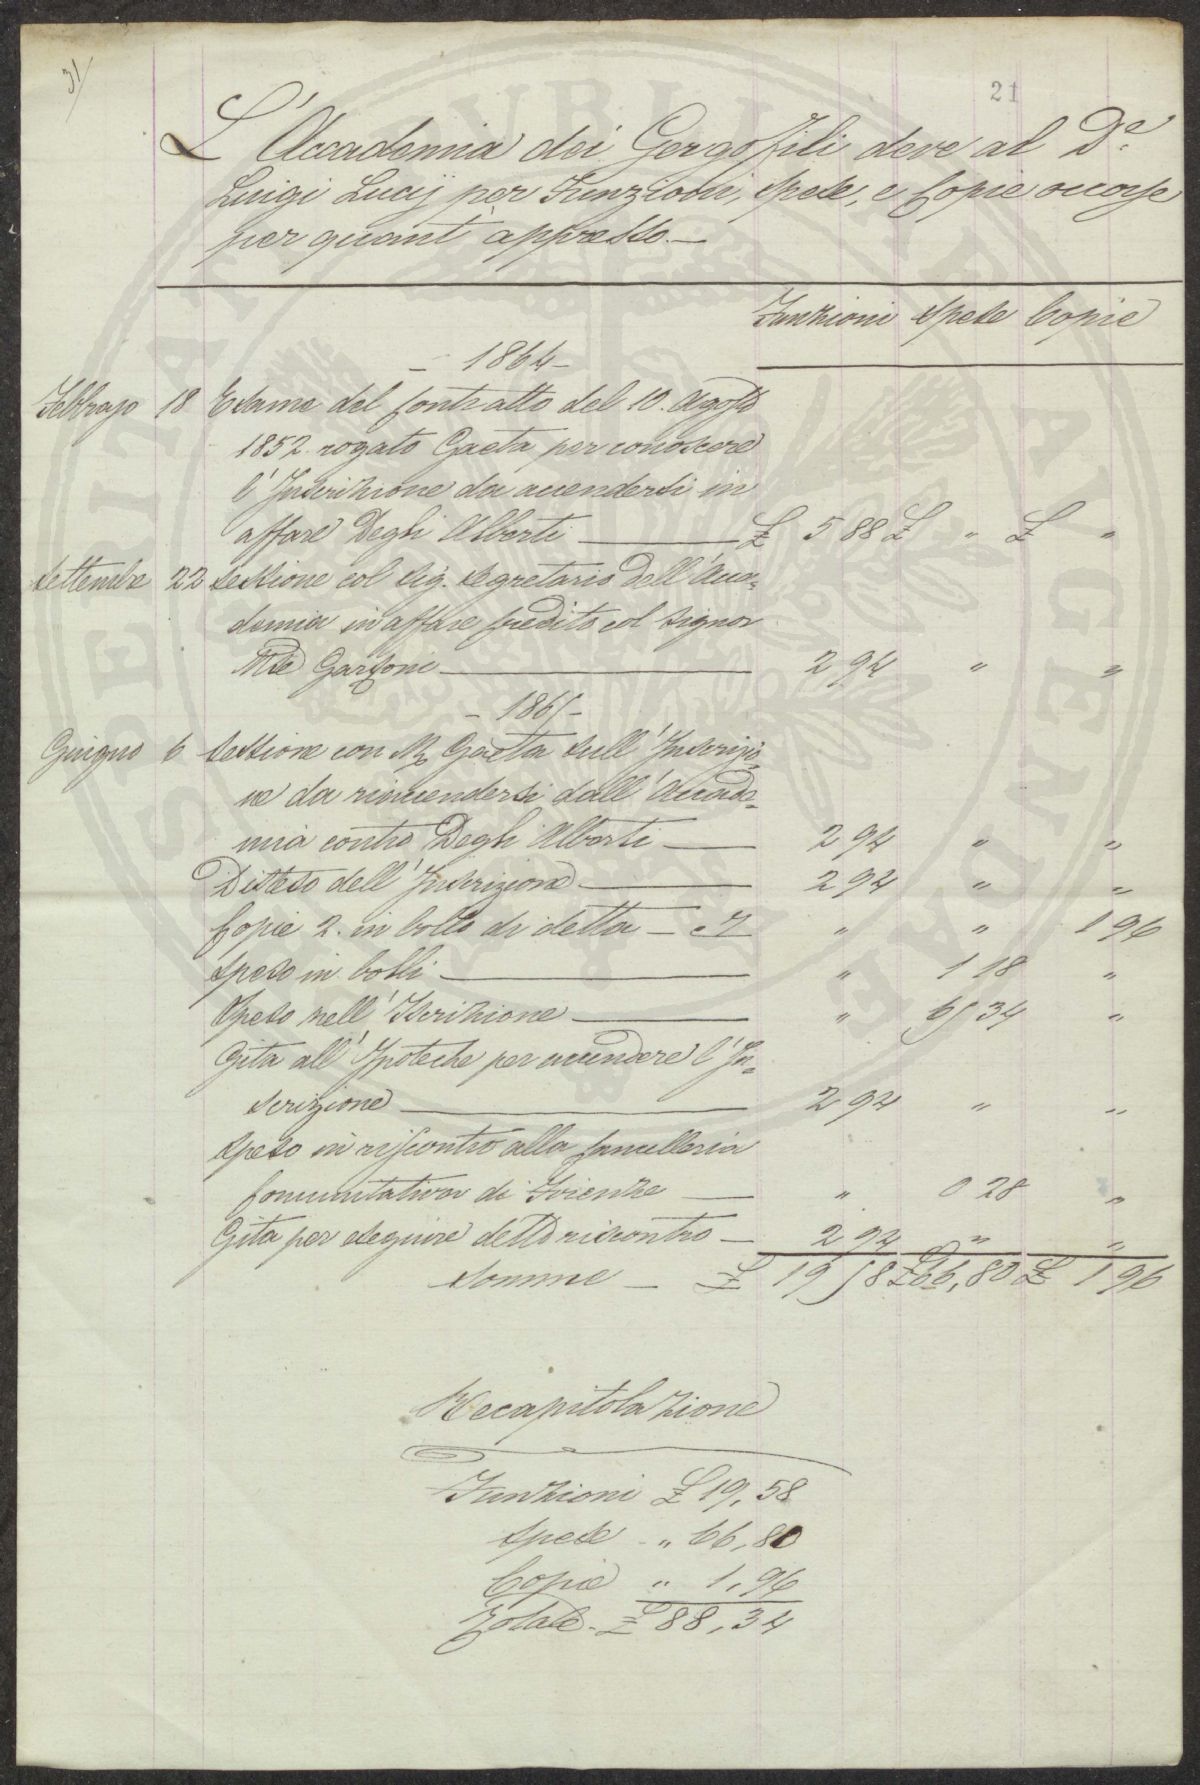 31/
21
L'Accademia dei Gergofili deve al D.e
Luigi Lucij per Funzioni, Spese, e Copie occorse
per quant' appresso.—
Funzioni Spese Copie
– 1864 –
Febbrajo 18 Esame del Contratto del 10. Agosto
1852. rogato Gaeta per conoscere
l'Inscrizione da accendersi in
affare Degli Alberti — £ 5 88 £ " £ "
Settembre 22 Sessione col Sig. Segretario dell'Acca=
demia in affare Credito col Signor
Garzoni — 2 94 " "
– 1865 –
Giugno 6 Sessione con Mr. Gaeta sull'Inscrizio=
ne da rinnuendersi dall'Accade=
mia contro Degli Alberti — 2 94 " "
Disteso dell'Inscrizione — 2 94 " "
Copie 2. in bollo di detta — c. 7 " " 1 96
Speso in bolli — " 1 18 "
Speso nell'Iscrizione — " 65 34 "
Gita all'Ipoteche per accendere l'In=
scrizione — 2 94 " "
Speso in riscontro alla Cancelleria
Comunitativa di Firenze — " 0 28 "
Gita per eseguire detto riscontro — 2 94 " "
Somme — £ 19 58 £ 66,80 £ 1 96
Recapitolazione
Funzioni £ 19, 58
Spese " 66, 80
Copie " 1, 96
Totale - £ 88, 34